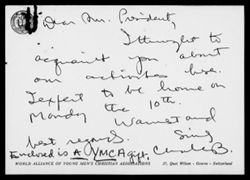 Dear Mr. President,
I thought to
acquaint you about
our activities here.
I expect to be home on
Monday the 10th.
Warmest
best regards. Sing
Enclosed is A YMCA gift. B.
WORLD ALLIANCE OF YOUNG MEN'S CHRISTIAN ASSOCIATIONS
37, Quai Wilson - Geneva - Switzerland